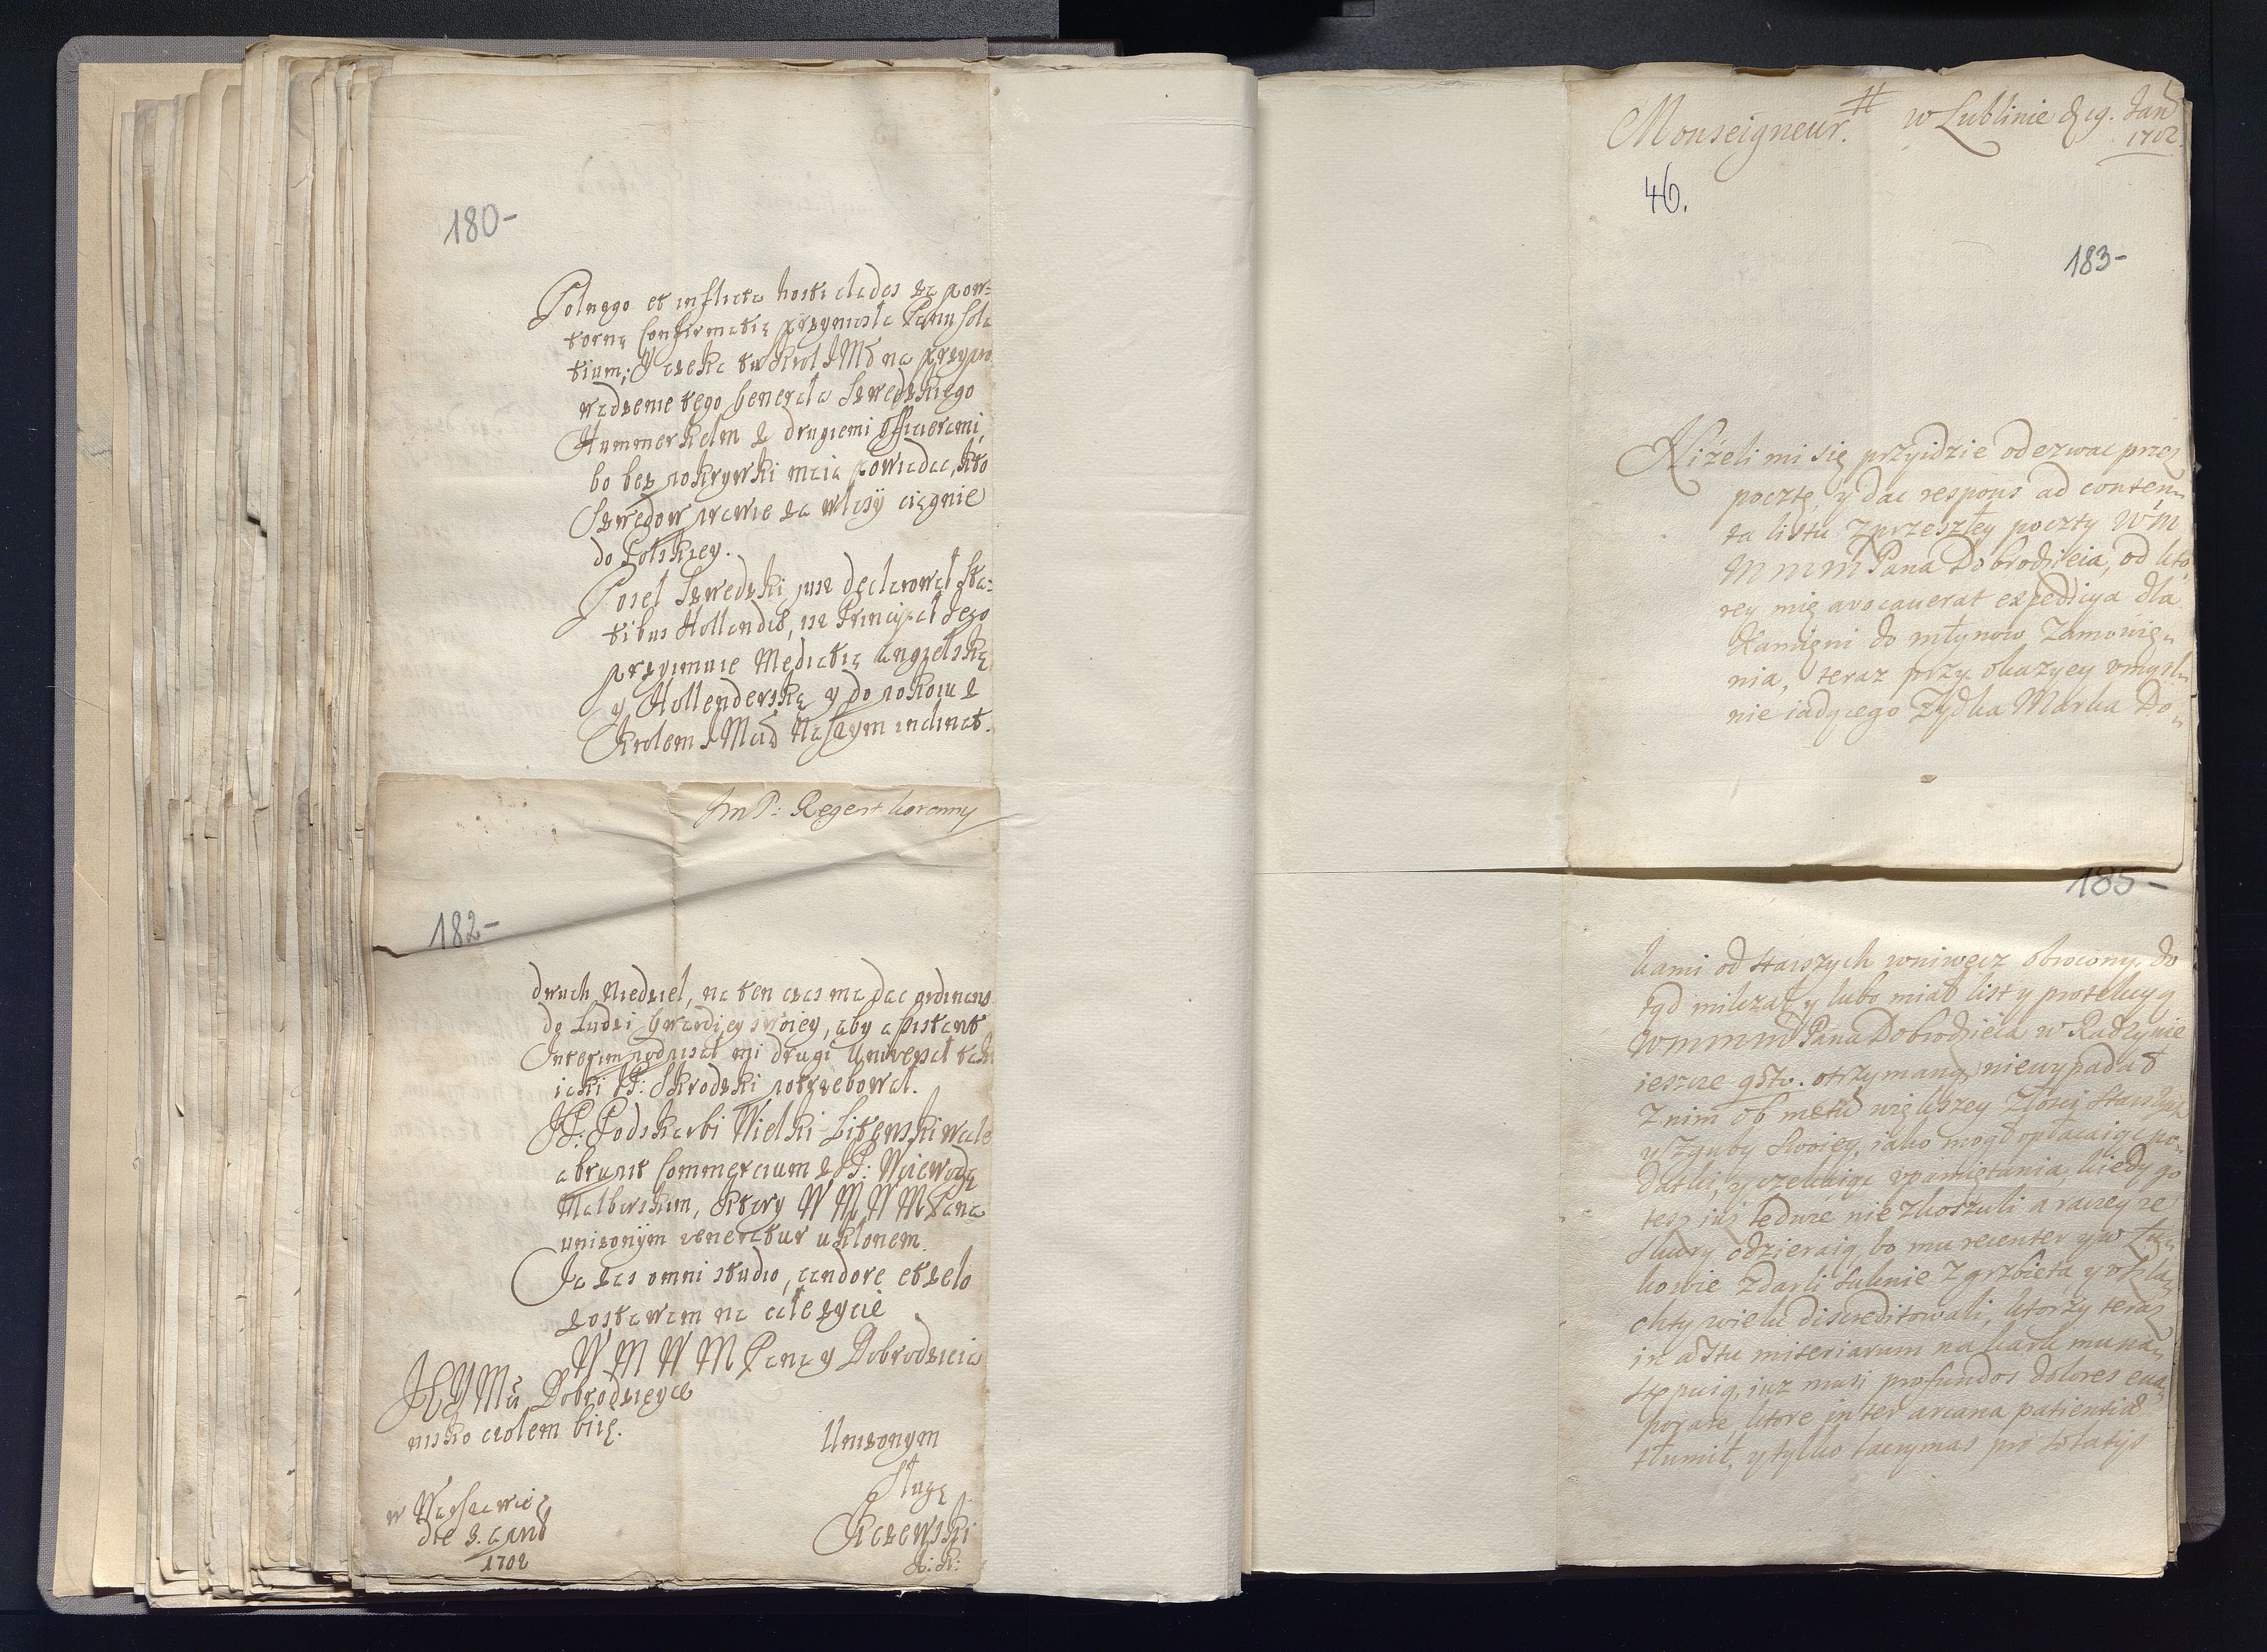 180-
Polnego et inflicta hosti clades za pow=
torną Confirmatią przyniosła Panu sola
tium; Y czeka tu Krol JMć na przypro
wadzenie tego Generała Szwedzkiego
Hummerhelm z drugiemi Officierami,
bo bez pokrywki maią powiadać, kto
Szwedow prawie za włosy ciągnie
do Polskiey.
Poseł Szwedzki, iusz declarował Sta=
tibus Hollandiæ, isz Principał Iego
przyimuie Mediatią Angielską
y Hollenderską y do pokoiu z
Krolem JMcią Naszym inclinat.
JmP: Regent koronny
182-
dwuch Niedziel, na ten czas ma dac ordinans
do Ludzi Gwardiey swoiey, aby assistant
Interim podpisał mi drugi Uniwersał taki
iaki JP: Skrodzki potrzebował.
JP: Podskarbi Wielki Litewski wcale
abrupit Commercium z JP: Woiewodą
Malborskim, ktory W M W M Pana
unizonym veneratur ukłonem.
Ja zas omni studio, candore et zelo
zostawam na całe zycie
W M W M Pana y Dobrodzieia
JEYMći Dobrodzieyce
nisko czołem biię.
Unizonym
Sługą
Rzewski
w Warszawie
die 3. april
1702
Monseigneur.
w Lublinie d 19. Jan
1702
46.
183-
Niżeli mi się przyidzie odezwac przez
pocztę, y dac respons ad conten
ta listu z przeszłey poczty Wm
M m m Pana Dobrodzieia, od kto
rey mię avocauerat expeditya dla
Kamieni do młynow zamowie
nia, teraz przy okazyey vmysl
nie iadącego Zydka Marka Do
185-
kami od starszych wniwecz obrocony, do
tyd milczał, y lubo miał listy protekcyą
Wmmm Pana Dobrodzieia w Radzynie
ieszcze otrzymaną, niewypadał
z nim ob metu większey złosci starszych
y zguby swoiey, iako mogł opłacaiąc po
datki, y czekaiąc vpamiętania, kiedy go
tesz iusz ledwie nie z koszuli a raczey ze
skury odzieraią, bo mu recenter y w Łu
kowie zdarli suknie z grzbieta, y v szla
chty wielu discreditowali, ktorzy teraz
in astu miseriarum na kark mu na
stępuią, iuz musi profundos dolores eua
porare, ktore inter arcana patientiæ
tłumił, y tylko lacrymas pro solatys